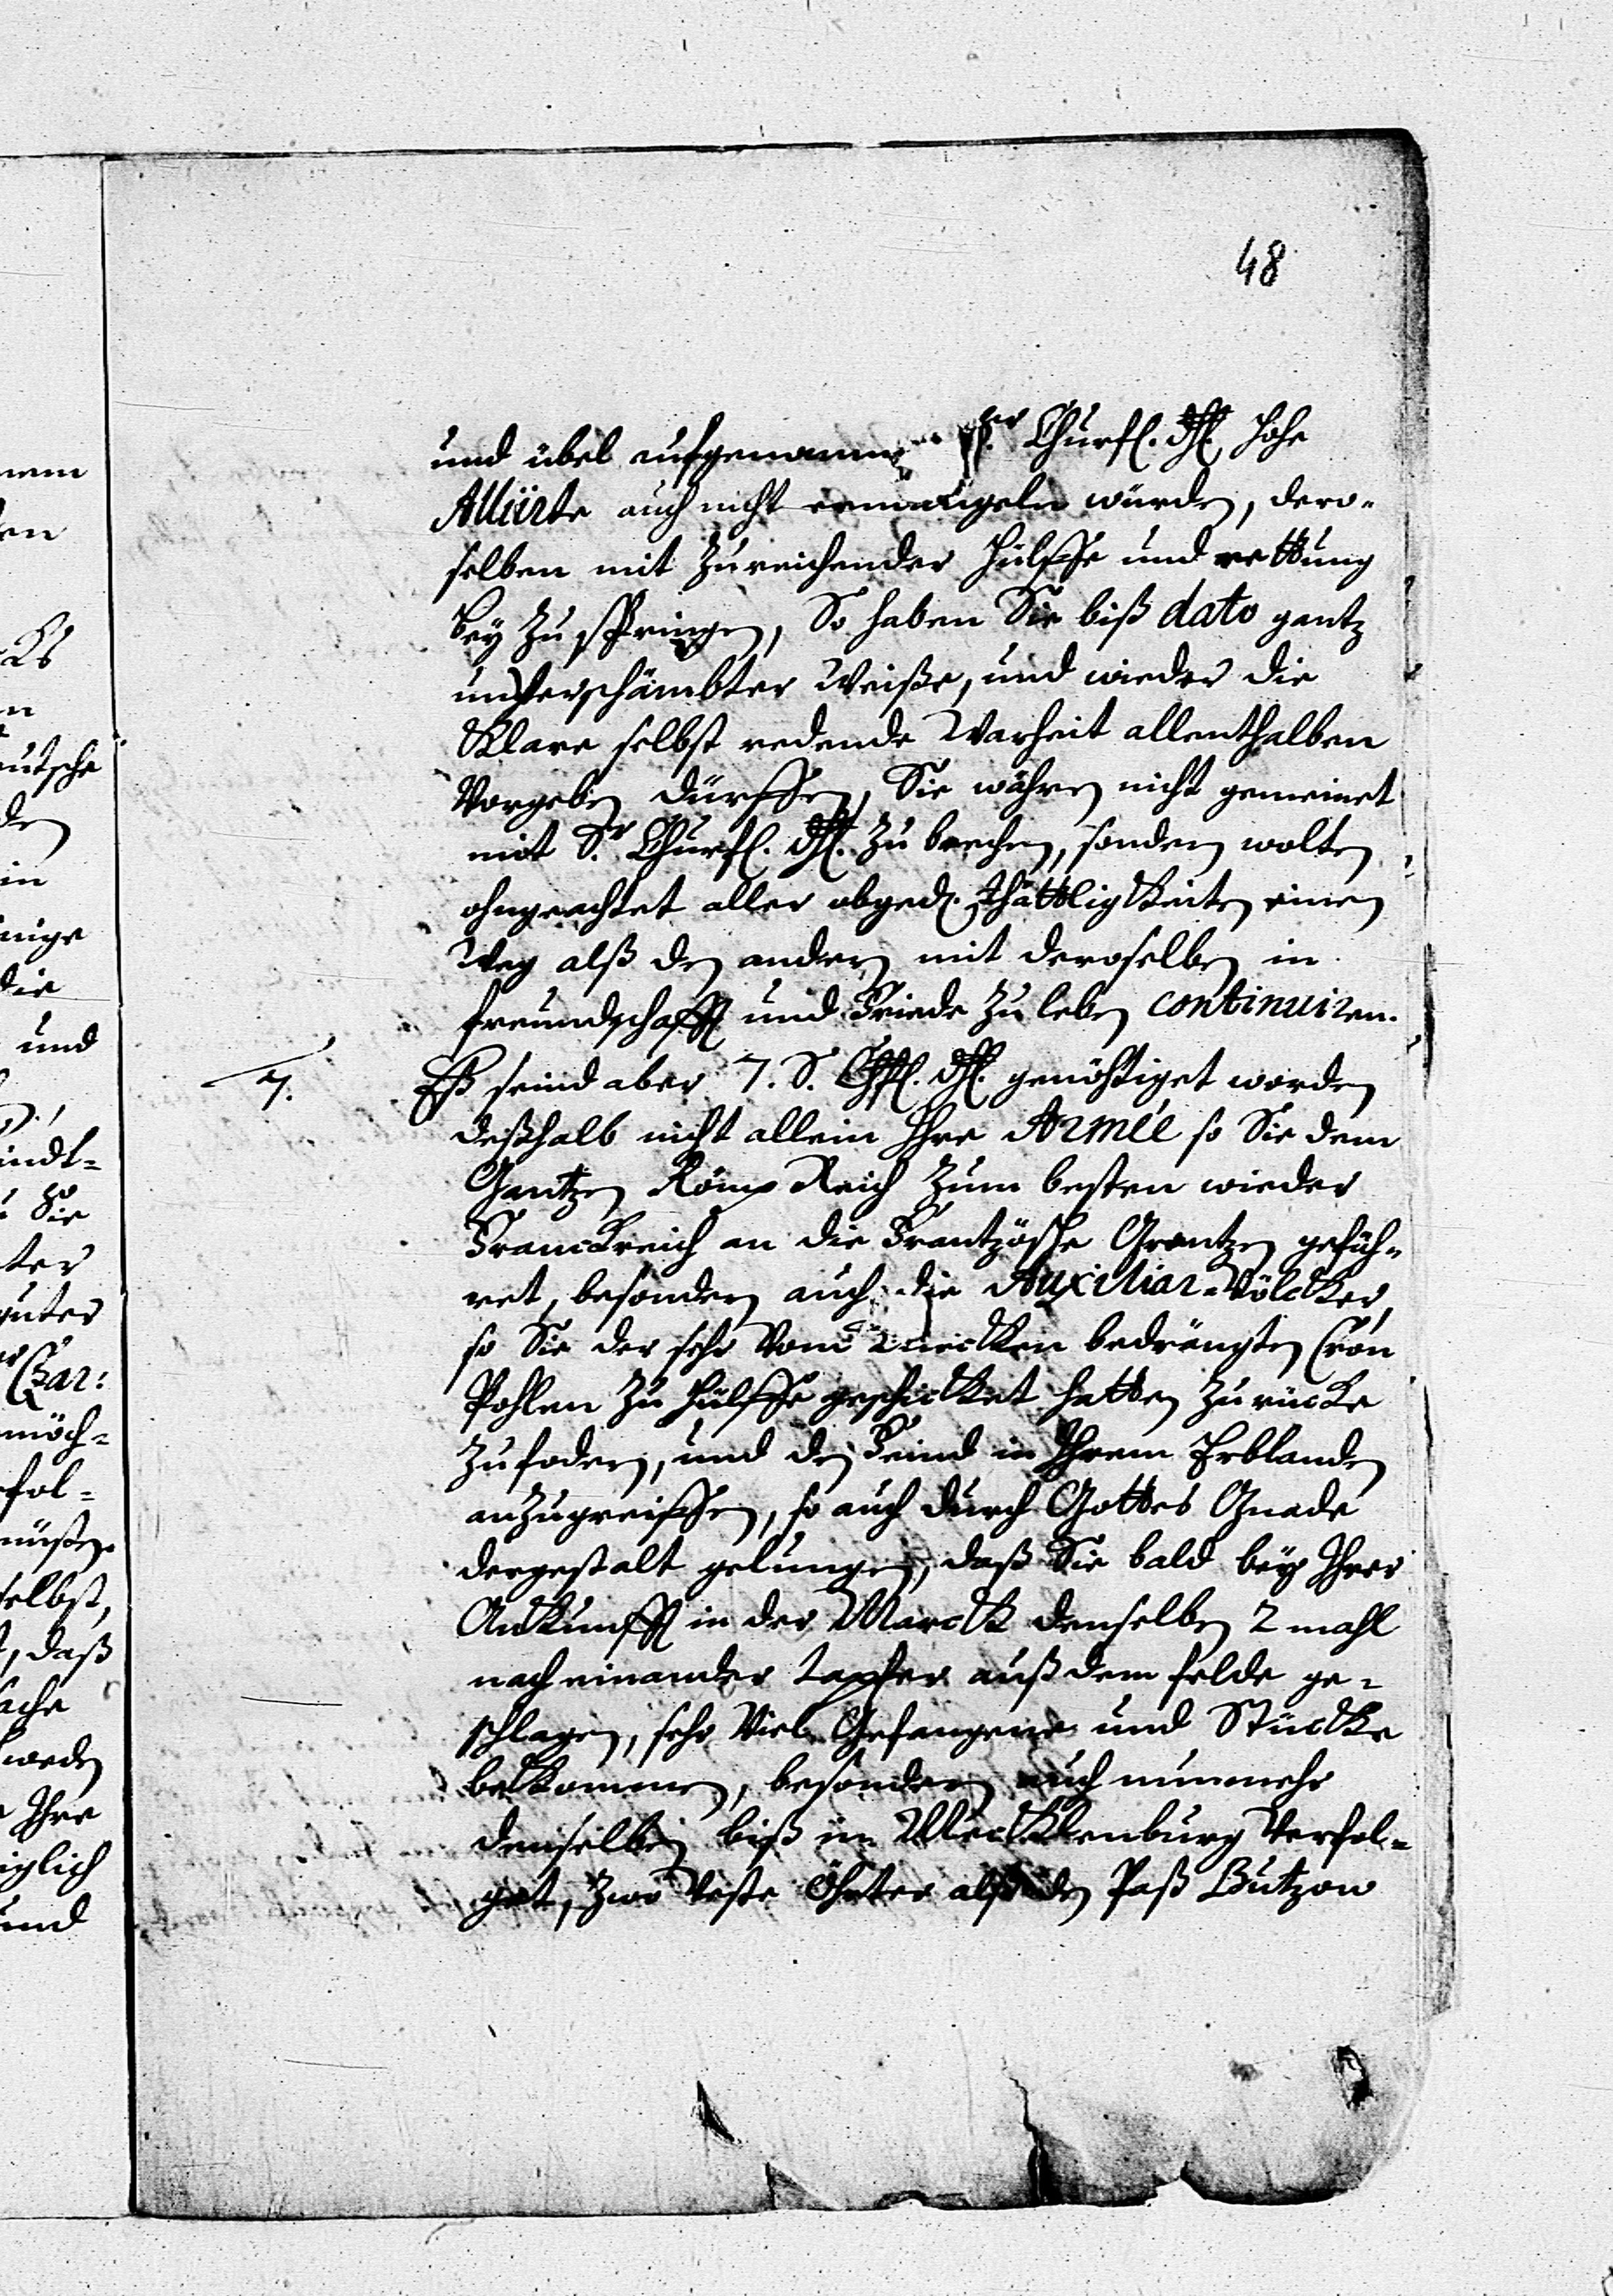 48
und übel aufgenommen Sr. Churfl. Dhl. hohe
Alliirte auch nicht ermangeln würden, dero-
selben mit zureichender Hülffe und rettung
bey zu springen, So haben Sie biß dato gantz
unverschämbter Weiße, und wieder die
Klare selbst redende Warheit allenthalben
Vorgeben dürffen, Sie währen nicht gemeinet
mit Sr. Churfl. Dhl. zu brechen, sondern wolten
ohngeachtet aller obged. Thättligkeiten einen
Weg alß den andern mit deroselben in
freundschafft und Friede zu leben continuiren.
7. Eß seind aber 7. S. Chfl. Dhl. genöhtiget worden
deßhalb nicht allein Ihre Armée so Sie dem
Gantzen Röm. Reich zum besten wieder
Franckreich an die Frantzösche Grentzen gefüh-
ret, besondern auch die Auxiliar-Völcker,
so Sie der sehr vom Türcken bedrängten Cron
Pohlen zu Hülffe geschicket hatten zurücke
zufodern, und den Feind in Ihrem Erblanden
anzugreiffen, so auch durch Gottes Gnade
dergestalt gelungen, daß Sie bald bey Ihrer
Ankunfft in der Marck denselben 2 mahl
nach einander tapfer auß dem felde ge-
schlagen, sehr Viel Gefangene und Stücke
bekommen, besondern auch nunmehr
denselben biß in Mecklenburg Verfol-
get, zwo Veste Öhrter alß den Paß Butzow
nem
en
n
eutsche
den
in
inige
die
und
indt-
Sie
ter
guter
möch-
fol-
müßen.
selbst,
, daß
ache
weden
Ihre
iglich
und